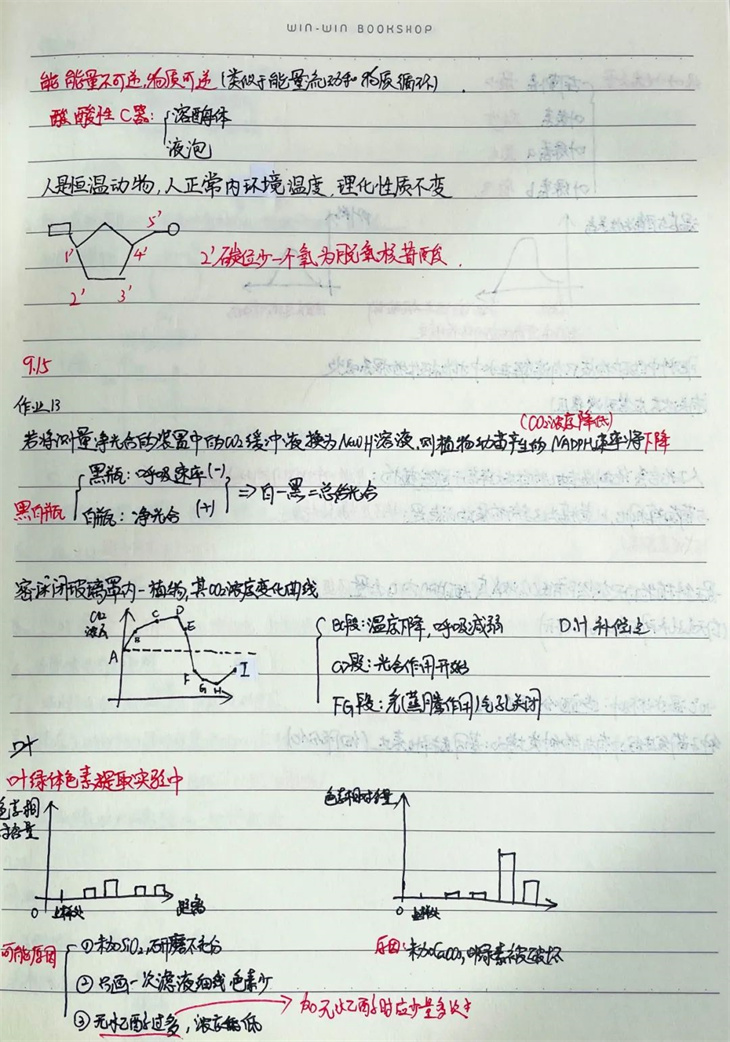 WIN-WIN BOOKSHOP
能 能量不可逆,物质可逆 (类似于能量流动和物质循环).
酸 酸性C器: 溶酶体
液泡
人是恒温动物,人正常内环境温度,理化性质不变
5'
1' 4' 2'碳位少一个氧为脱氧核苷酸.
2' 3'
9.15
作业13
(CO2浓度降低)
若将测量净光合的装置中的CO2缓冲液换为NaOH溶液,则植物幼苗产生的NADPH速率将下降
黑白瓶 黑瓶: 呼吸速率(-)
白瓶: 净光合 (+) ⇒ 白-黑=总光合
密闭玻璃罩内一植物,其CO2浓度变化曲线
CO2浓度 A B C D E F G H I
BC段:温度下降,呼吸减弱 D.H 补偿点
CD段:光合作用开始
FG段:光(蒸腾作用)气孔关闭
叶绿体色素提取实验中
色素相对含量 色素相对含量
0 点样处 距离 0 点样处
可能原因 ①未加SiO2,研磨不充分 原因:未加CaCO3,叶绿素被破坏
②只画一次滤液细线,色素少
③无水乙醇过多,浓度偏低 加无水乙醇时应少量多次